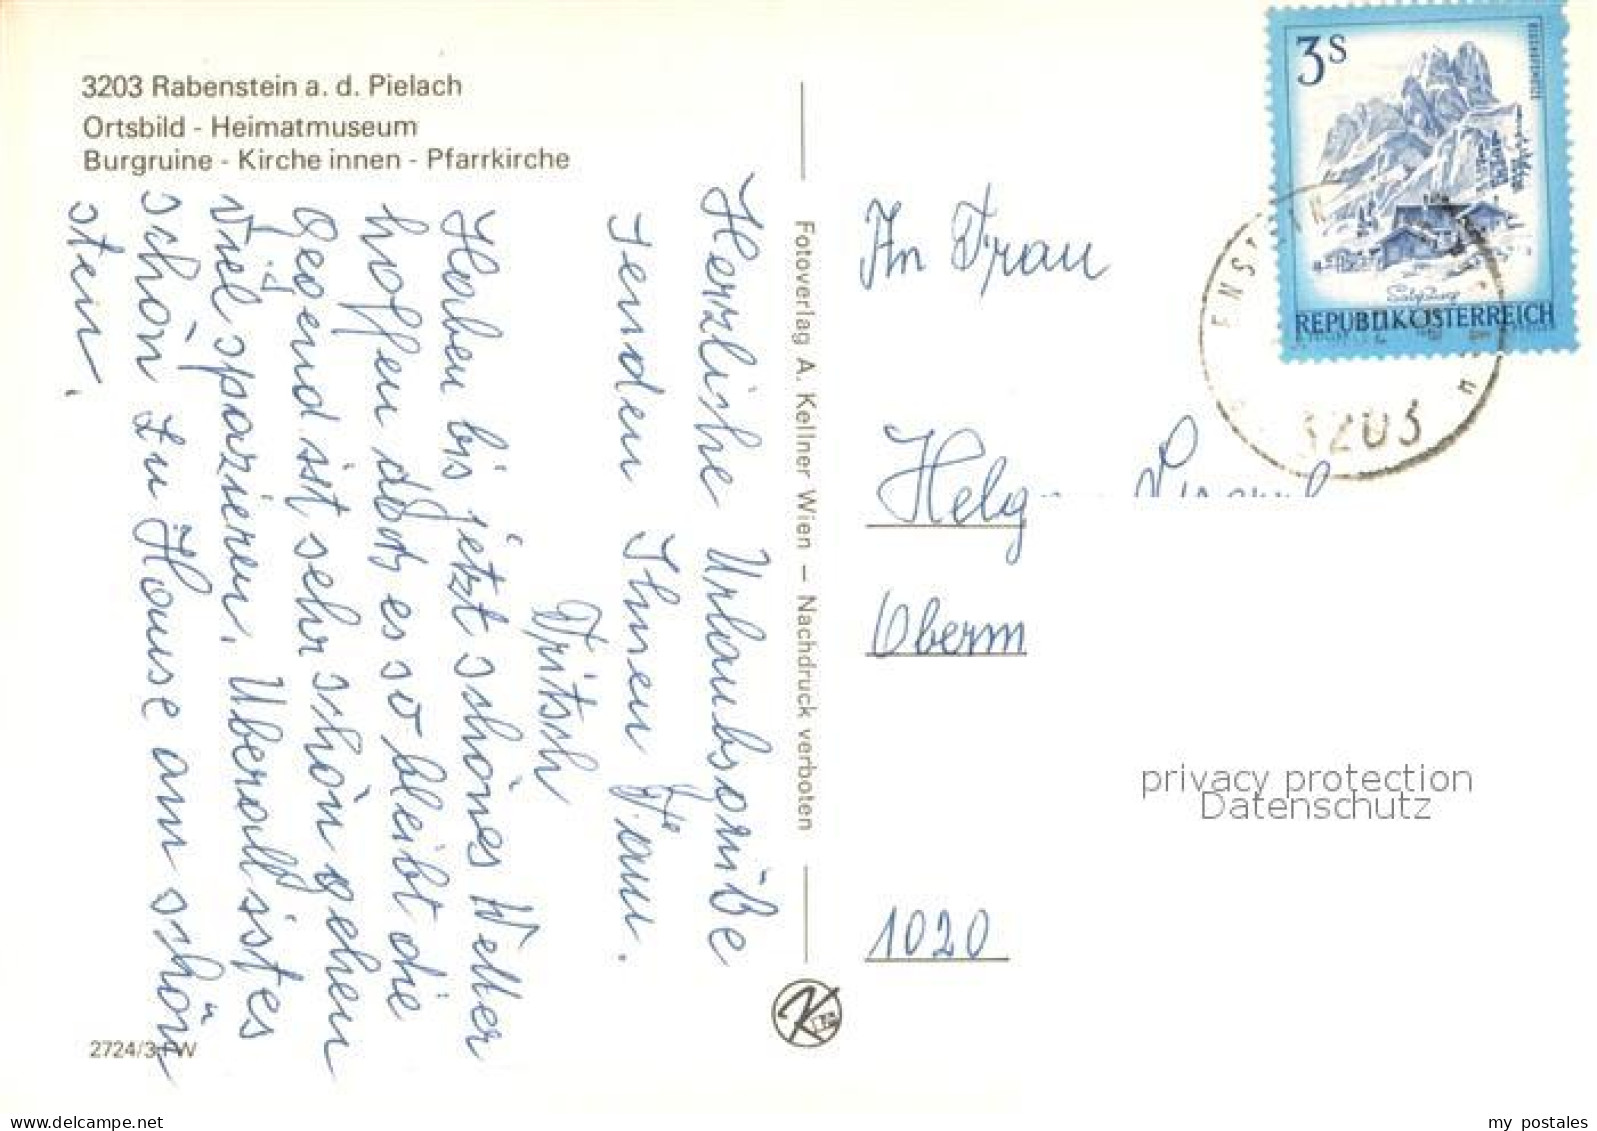 3203 Rabenstein a. d. Pielach
Ortsbild - Heimatmuseum
Burgruine - Kirche innen - Pfarrkirche
Herzliche Urlaubsgrüße
senden Ihnen Fam.
Fritsch
Haben bis jetzt schönes Wetter
hoffen das es so bleibt die
Gegend ist sehr schön gehen
viel spazieren. Überall ist es
schön zu Hause am schön
sten.
Fotoverlag A. Kellner Wien – Nachdruck verboten
2724/3
3S
Salzburg
REPUBLIK ÖSTERREICH
3203
An Frau
Helg
Oberm
1020
privacy protection
Datenschutz
delcampe.net
my_postales